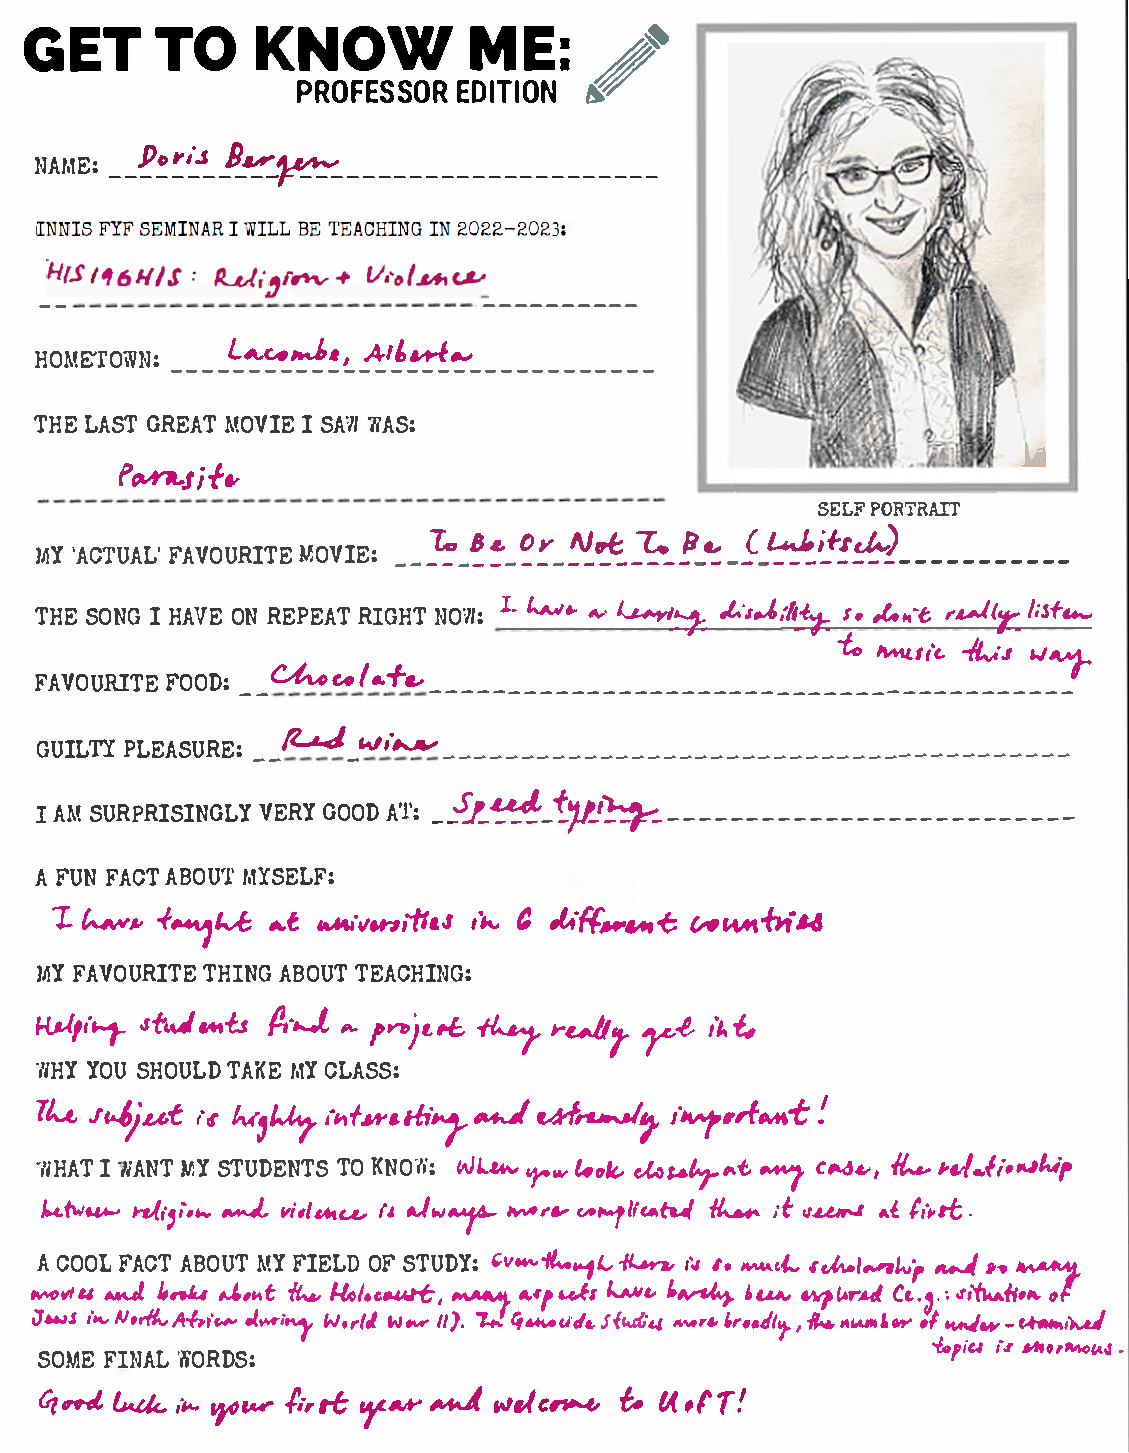 GET TO KNOW ME:
PROFESSOR EDITION
NAME: Doris Bergen
INNIS FYF SEMINAR I WILL BE TEACHING IN 2022-2023:
HIS196H1S: Religion + Violence
HOMETOWN: Lacombe, Alberta
THE LAST GREAT MOVIE I SAW WAS:
Parasite
SELF PORTRAIT
MY 'ACTUAL' FAVOURITE MOVIE: To Be Or Not To Be (Lubitsch)
THE SONG I HAVE ON REPEAT RIGHT NOW: I have a hearing disability so don't really listen
to music this way
FAVOURITE FOOD: Chocolate
GUILTY PLEASURE: Red wine
I AM SURPRISINGLY VERY GOOD AT: Speed typing
A FUN FACT ABOUT MYSELF:
I have taught at universities in 6 different countries
MY FAVOURITE THING ABOUT TEACHING:
Helping students find a project they really get into
WHY YOU SHOULD TAKE MY CLASS:
The subject is highly interesting and extremely important!
WHAT I WANT MY STUDENTS TO KNOW: When you look closely at any case, the relationship
between religion and violence is always more complicated than it seems at first.
A COOL FACT ABOUT MY FIELD OF STUDY: Even though there is so much scholarship and so many
movies and books about the Holocaust, many aspects have barely been explored (e.g.: situation of
Jews in North Africa during World War II). In Genocide Studies more broadly, the number of under-examined
topics is enormous.
SOME FINAL WORDS:
Good luck in your first year and welcome to U of T!